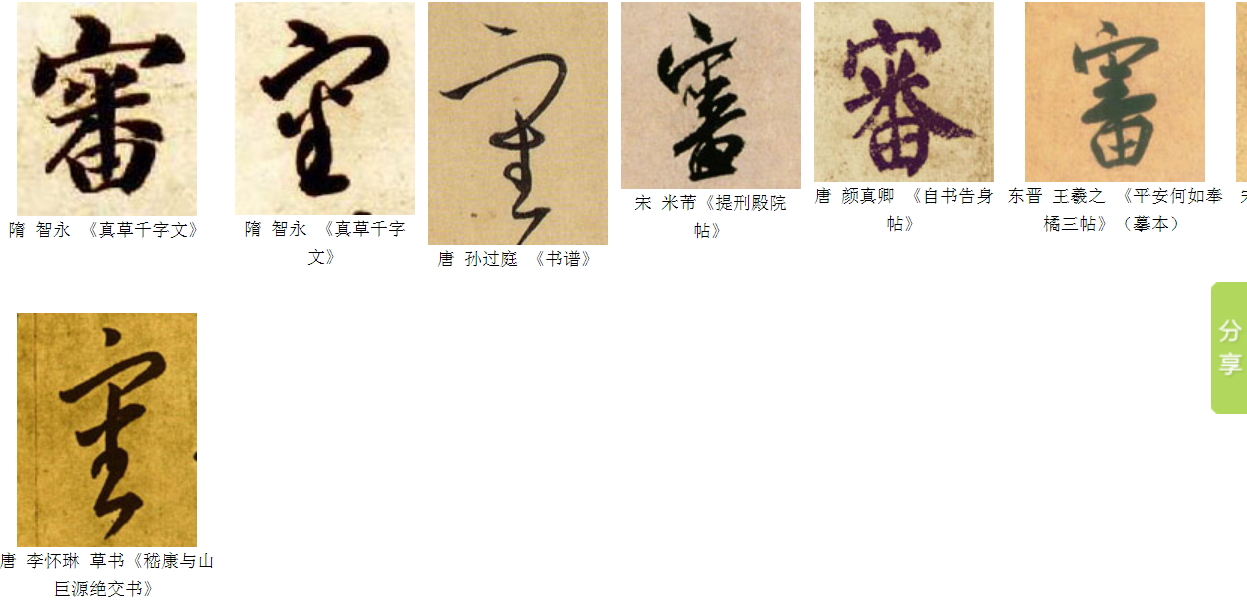 審
審
審
審
審
審
隋 智永 《真草千字文》
隋 智永 《真草千字
文》
唐 孙过庭 《书谱》
宋 米芾《提刑殿院
帖》
唐 颜真卿 《自书告身
帖》
东晋 王羲之 《平安何如奉
橘三帖》（摹本）
分
享
審
唐 李怀琳 草书《嵇康与山
巨源绝交书》